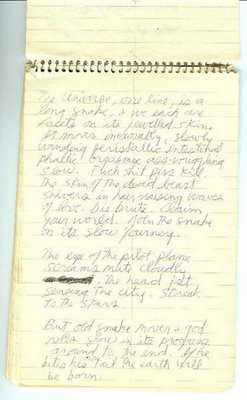 The Universe, one line, is a
long snake, & we each are
facets on its jewelled skin.
It moves inexorably, slowly
winding peristaltic intestinal
phallic orgasmic ass-wriggling
slow. Fuck shit piss kill
The skin of the dead beast
shivers in hair raising waves
of love. Die brute. Claim
your world. Join the snake
on its slow journey.
The eye of the pilot plane
screams mute cloudly
. The head felt
sensing the city. Streak
to the stars.
But old snake moves & god
slow in its progress
around to the end. If he
bites his Tail the earth will
be born.